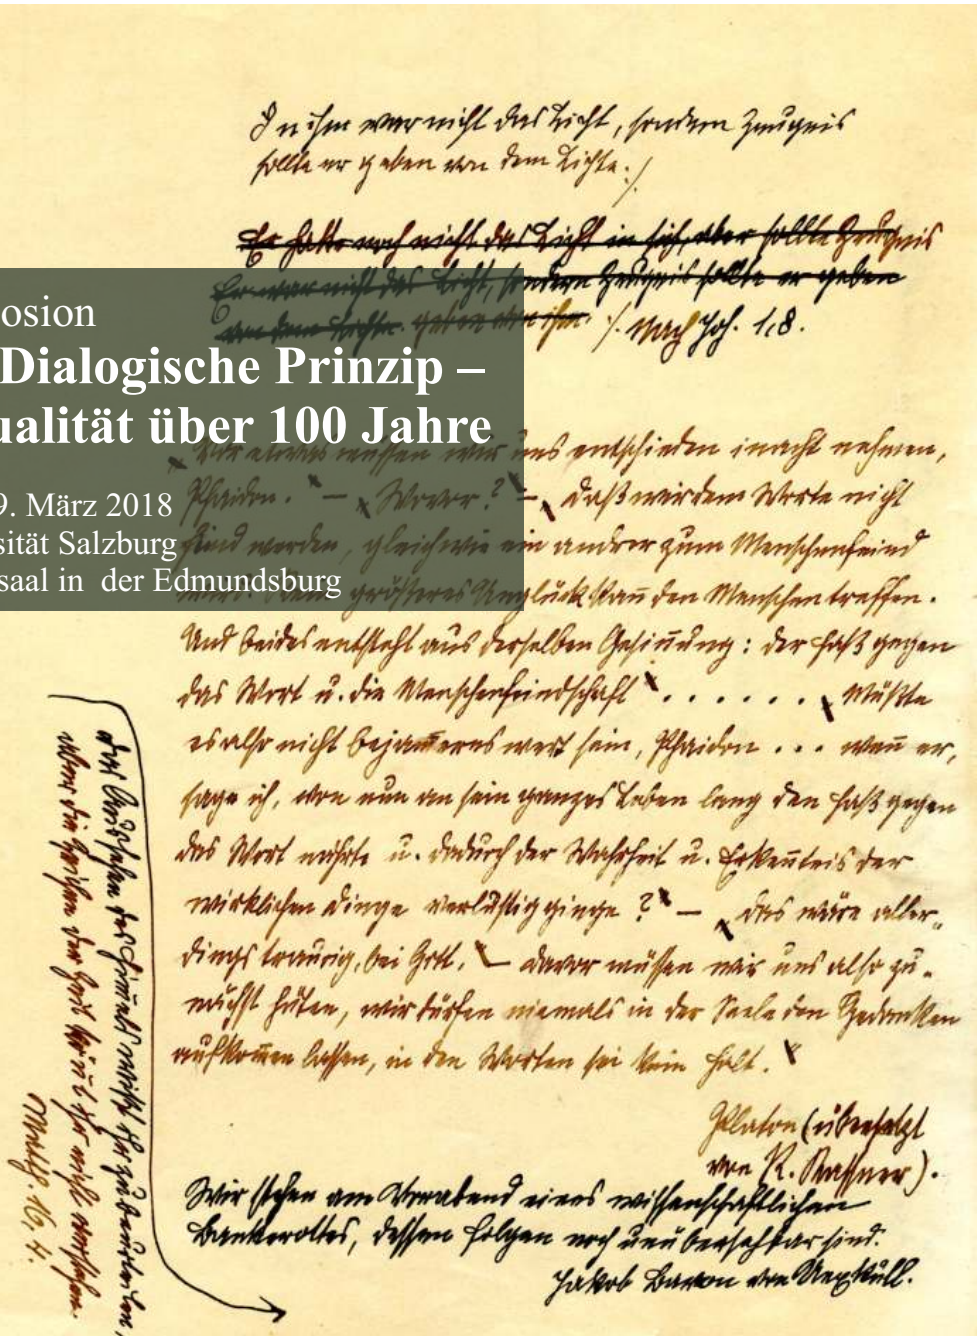 In ihm war nicht das Licht, sondern Zeugnis
sollte er geben von dem Lichte. /.
Er hatte noch nicht das Licht in sich, aber sollte Zeugnis
Er war nicht das Licht, sondern Zeugnis sollte er geben
von dem Lichte. geben von ihm. /. Nach Joh. 1,8.
osion
Dialogische Prinzip –
ualität über 100 Jahre
9. März 2018
sität Salzburg
saal in der Edmundsburg
„Vor etwas müssen wir uns entschieden inacht nehmen,
Phaidon.“ – „Wovor?“ – „Daß wir dem Worte nicht
feind werden, gleichwie ein andrer zum Menschenfeind
wird. Kein größeres Unglück kan̄ den Menschen treffen.
Und beides entsteht aus derselben Gesin̄ung: der Haß gegen
das Wort u. die Menschenfeindschaft“ . . . . . . „Müßte
es also nicht bejam̄erns wert sein, Phaidon . . . wen̄ er,
sage ich, von nun an sein ganzes Leben lang den Haß gegen
das Wort nährte u. dadurch der Wahrheit u. Erken̄tnis der
wirklichen Dinge verlustig ginge?“ – „Das wäre aller-
dings traurig, bei Gott.“ – Davor müssen wir uns also zu-
nächst hüten, wir dürfen niemals in der Seele den Gedanken
aufkom̄en lassen, in den Worten sei kein Halt.“
Platon (übersetzt
von R. Kassner).
Wir stehen am Vorabend eines wissenschaftlichen
Bankerottes, dessen Folgen noch unübersehbar sind.
Jakob Baron von Uexküll.
Das Aussehen des Him̄els wißt ihr zu beurteilen,
aber die Zeichen der Zeit kön̄t ihr nicht verstehen.
Matth. 16,4.